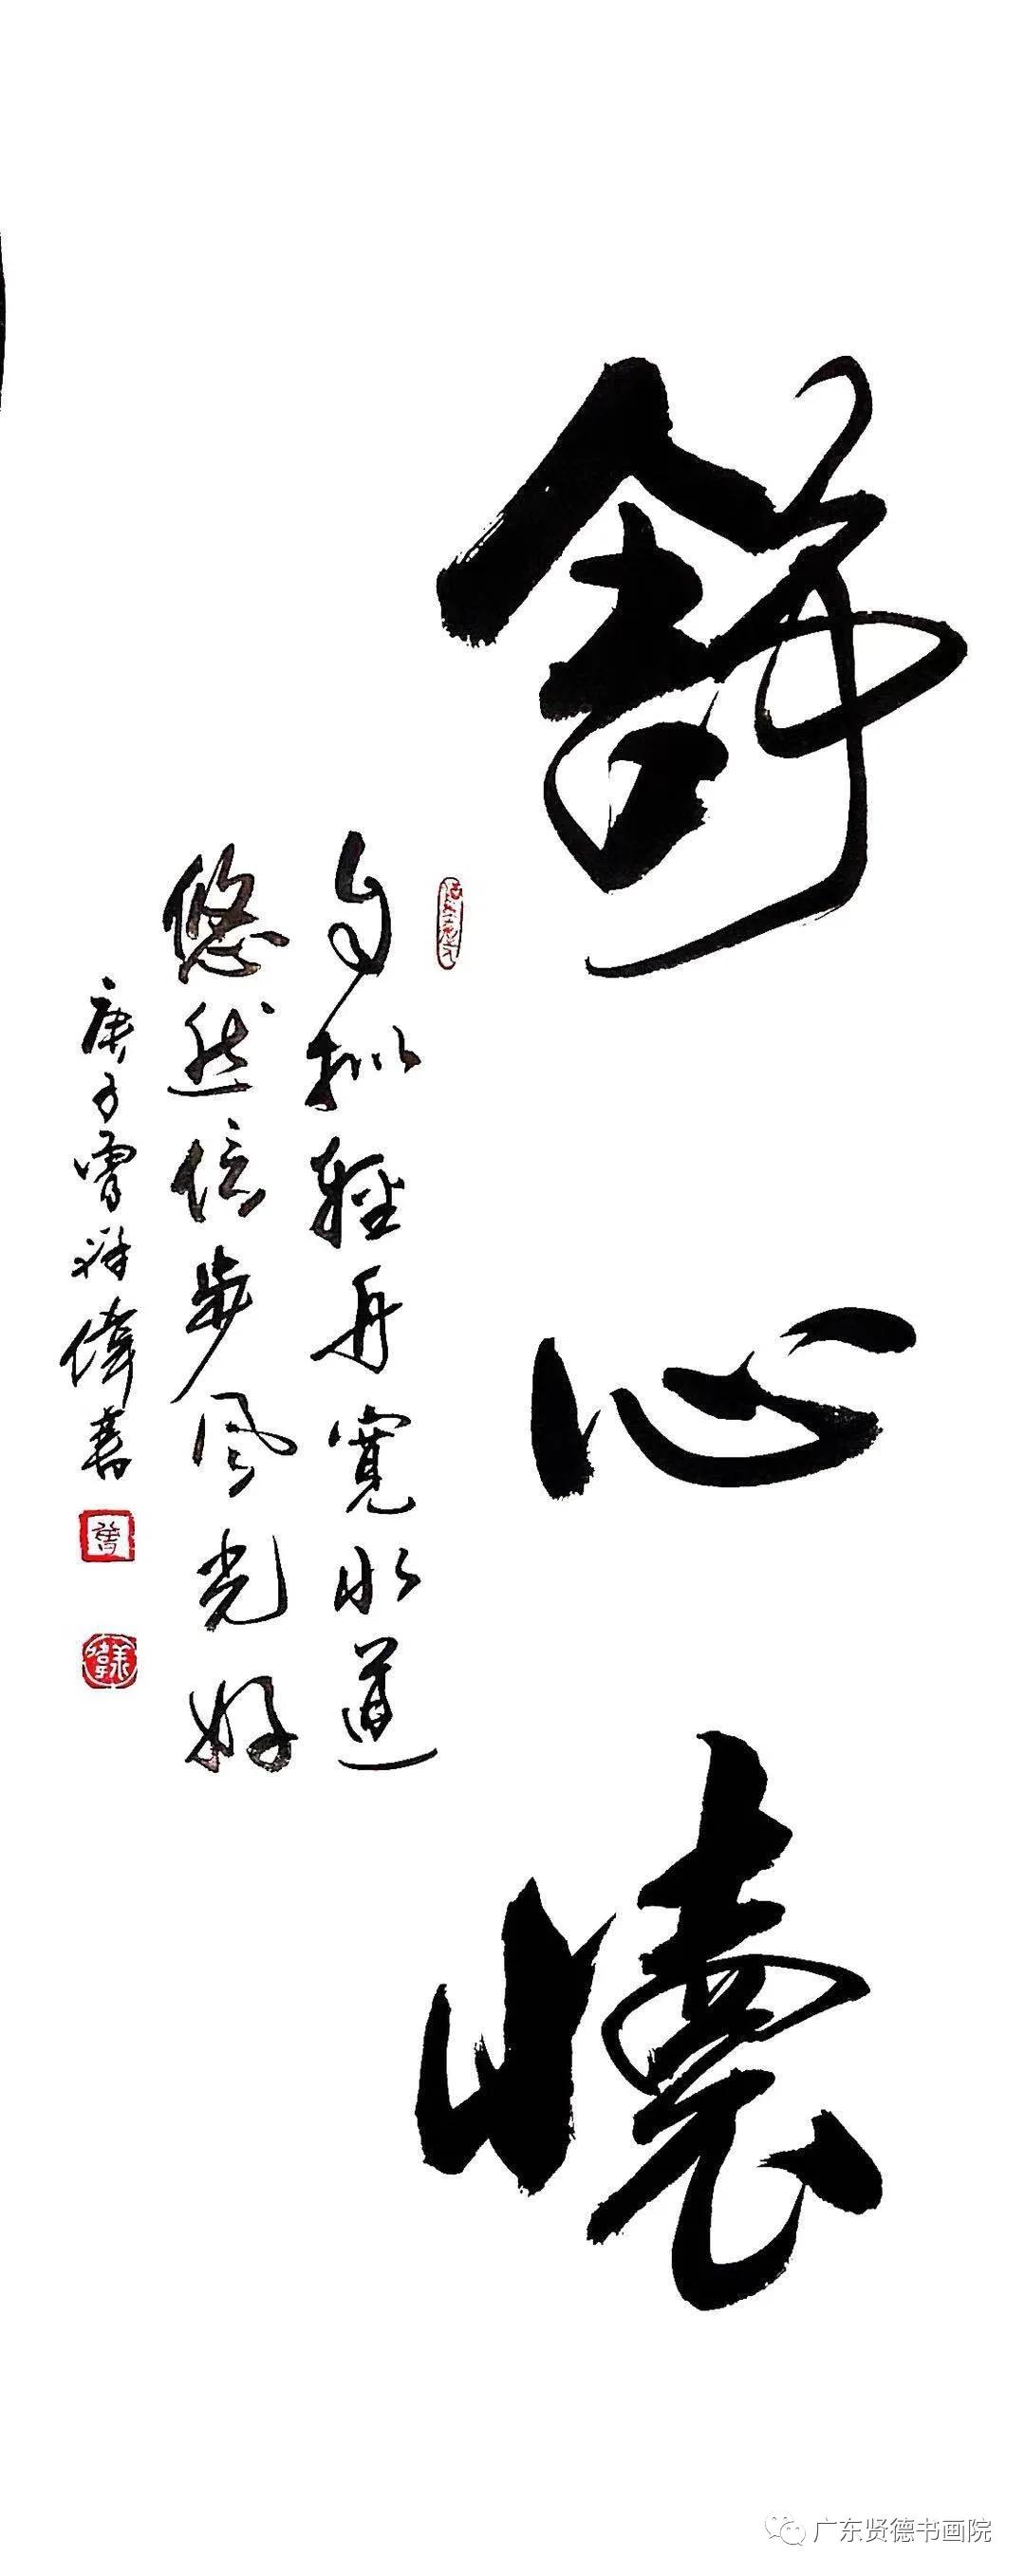 舒心懷
自拟輕舟寬水道
悠然信步風光好
庚子曾祥偉書
曾
祥偉
广东贤德书画院